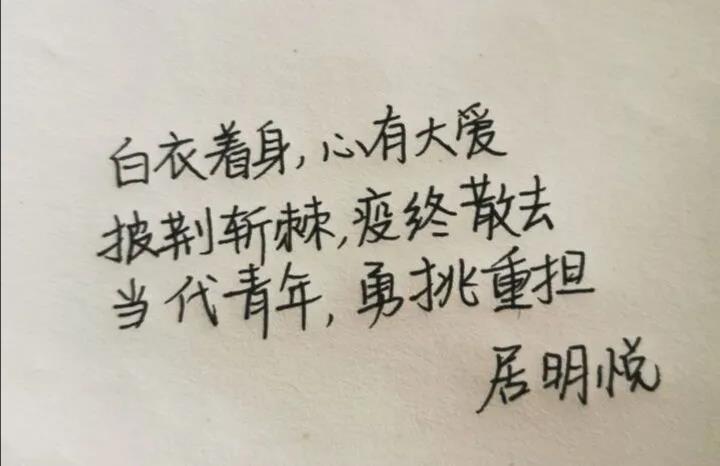 白衣着身,心有大爱
披荆斩棘,疫终散去
当代青年,勇挑重担
居明悦